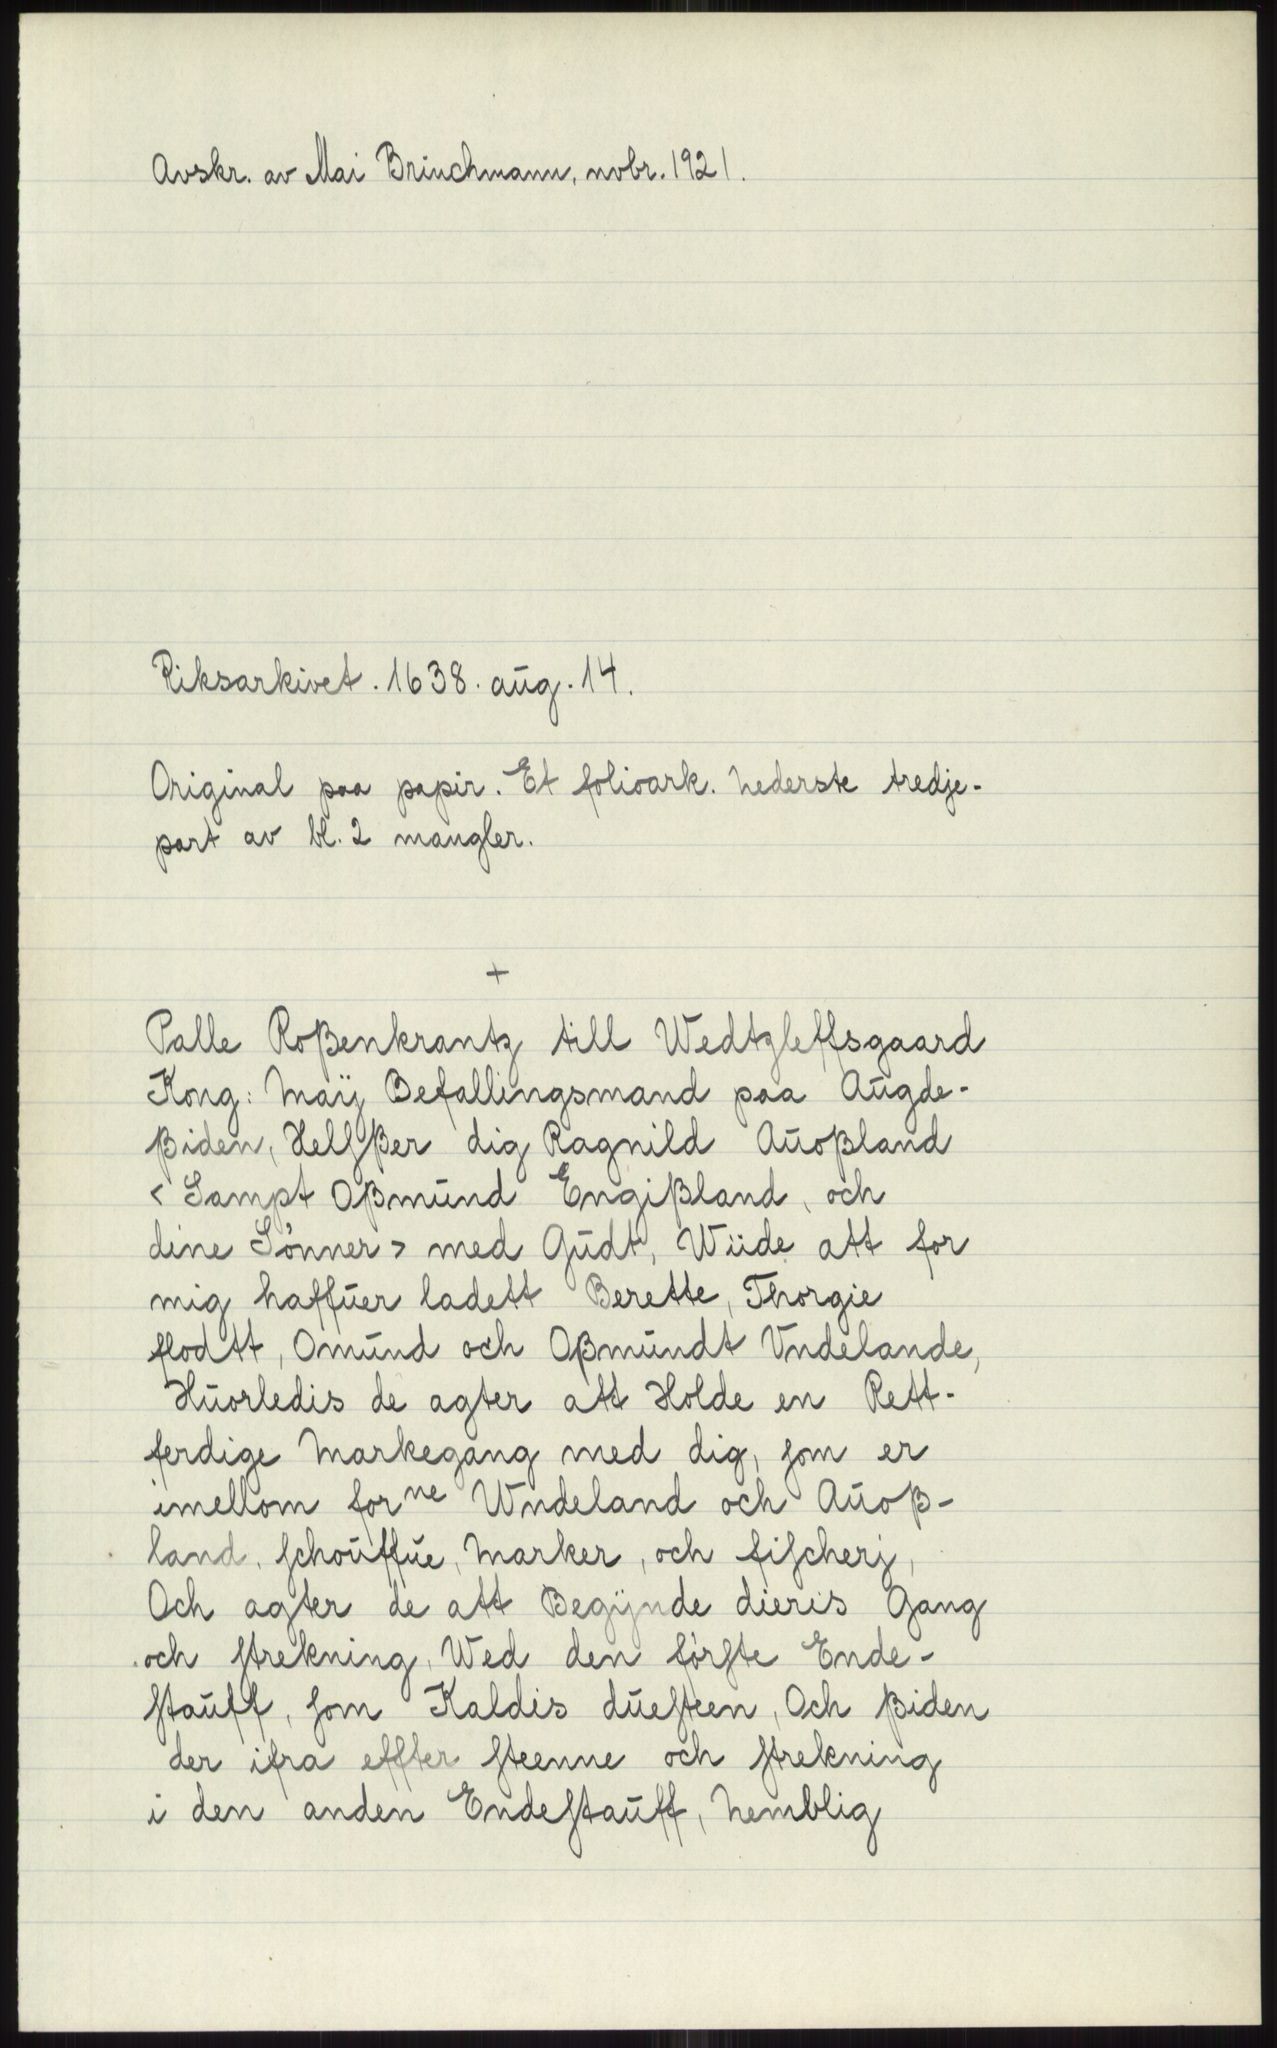 Avskr. av Mai Brinchmann, novbr. 1921.
Riksarkivet. 1638. aūg. 14.
Original paa papir. Et folioark. Nederste tredje-
part av bl. 2 mangler.
+
Palle Roßenkrantz till Wedtzleffsgaard
Kong: Maÿ Befallingsmand paa Aūgde-
ßiden, Helſßer dig Ragnild Aūoßland
< Sampt Oßmūnd Engißland, och
dine Sönner > med Gūdt, Wiide att for
mig haffūer ladett Berette, Thorgie
flodtt, Omūnd och Oßmūndt Vndelande,
Hūorledis de agter att Holde en Rett-
ferdige Markegang med dig, ſom er
imellom forne Wndeland och Aūoß-
land, ſchoūffūe, Marker, och fiſcherj,
Och agter de att Begÿnde dieris Gang
och ſtrekning, Wed den förſte Ende-
ſtaūff, ſom Kaldis dūeſteen, Och ßiden
der ifra effter ſteenne och ſtrekning
i den anden Endeſtaūff, Nemblig